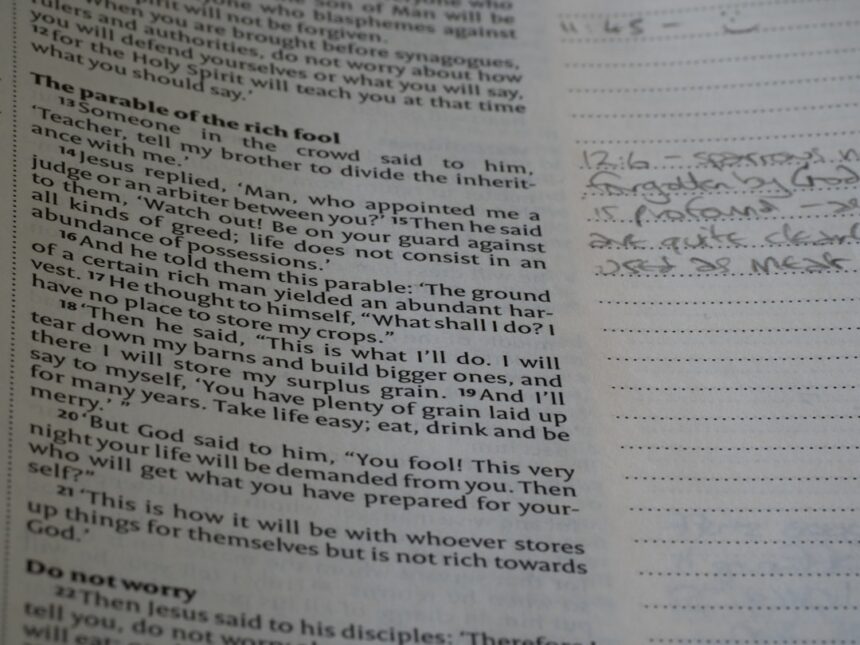 Son of Man will be
one who blasphemes against
pirit will not be forgiven.
When you are brought before synagogues,
rulers and authorities, do not worry about how
you will defend yourselves or what you will say,
12 for the Holy Spirit will teach you at that time
what you should say.'
The parable of the rich fool
13 Someone in the crowd said to him,
'Teacher, tell my brother to divide the inherit-
ance with me.'
14 Jesus replied, 'Man, who appointed me a
judge or an arbiter between you?' 15 Then he said
to them, 'Watch out! Be on your guard against
all kinds of greed; life does not consist in an
abundance of possessions.'
16 And he told them this parable: 'The ground
of a certain rich man yielded an abundant har-
vest. 17 He thought to himself, "What shall I do? I
have no place to store my crops."
18 'Then he said, "This is what I'll do. I will
tear down my barns and build bigger ones, and
there I will store my surplus grain. 19 And I'll
say to myself, 'You have plenty of grain laid up
for many years. Take life easy; eat, drink and be
merry.' "
20 'But God said to him, "You fool! This very
night your life will be demanded from you. Then
who will get what you have prepared for your-
self?"
21 'This is how it will be with whoever stores
up things for themselves but is not rich towards
God.'
Do not worry
22 Then Jesus said to his disciples: 'Therefore I
tell you, do not worry
will eat;
11:45 -
12:6 - sparrows n
forgotten by God
is profound -
are quite clearl
used as meat